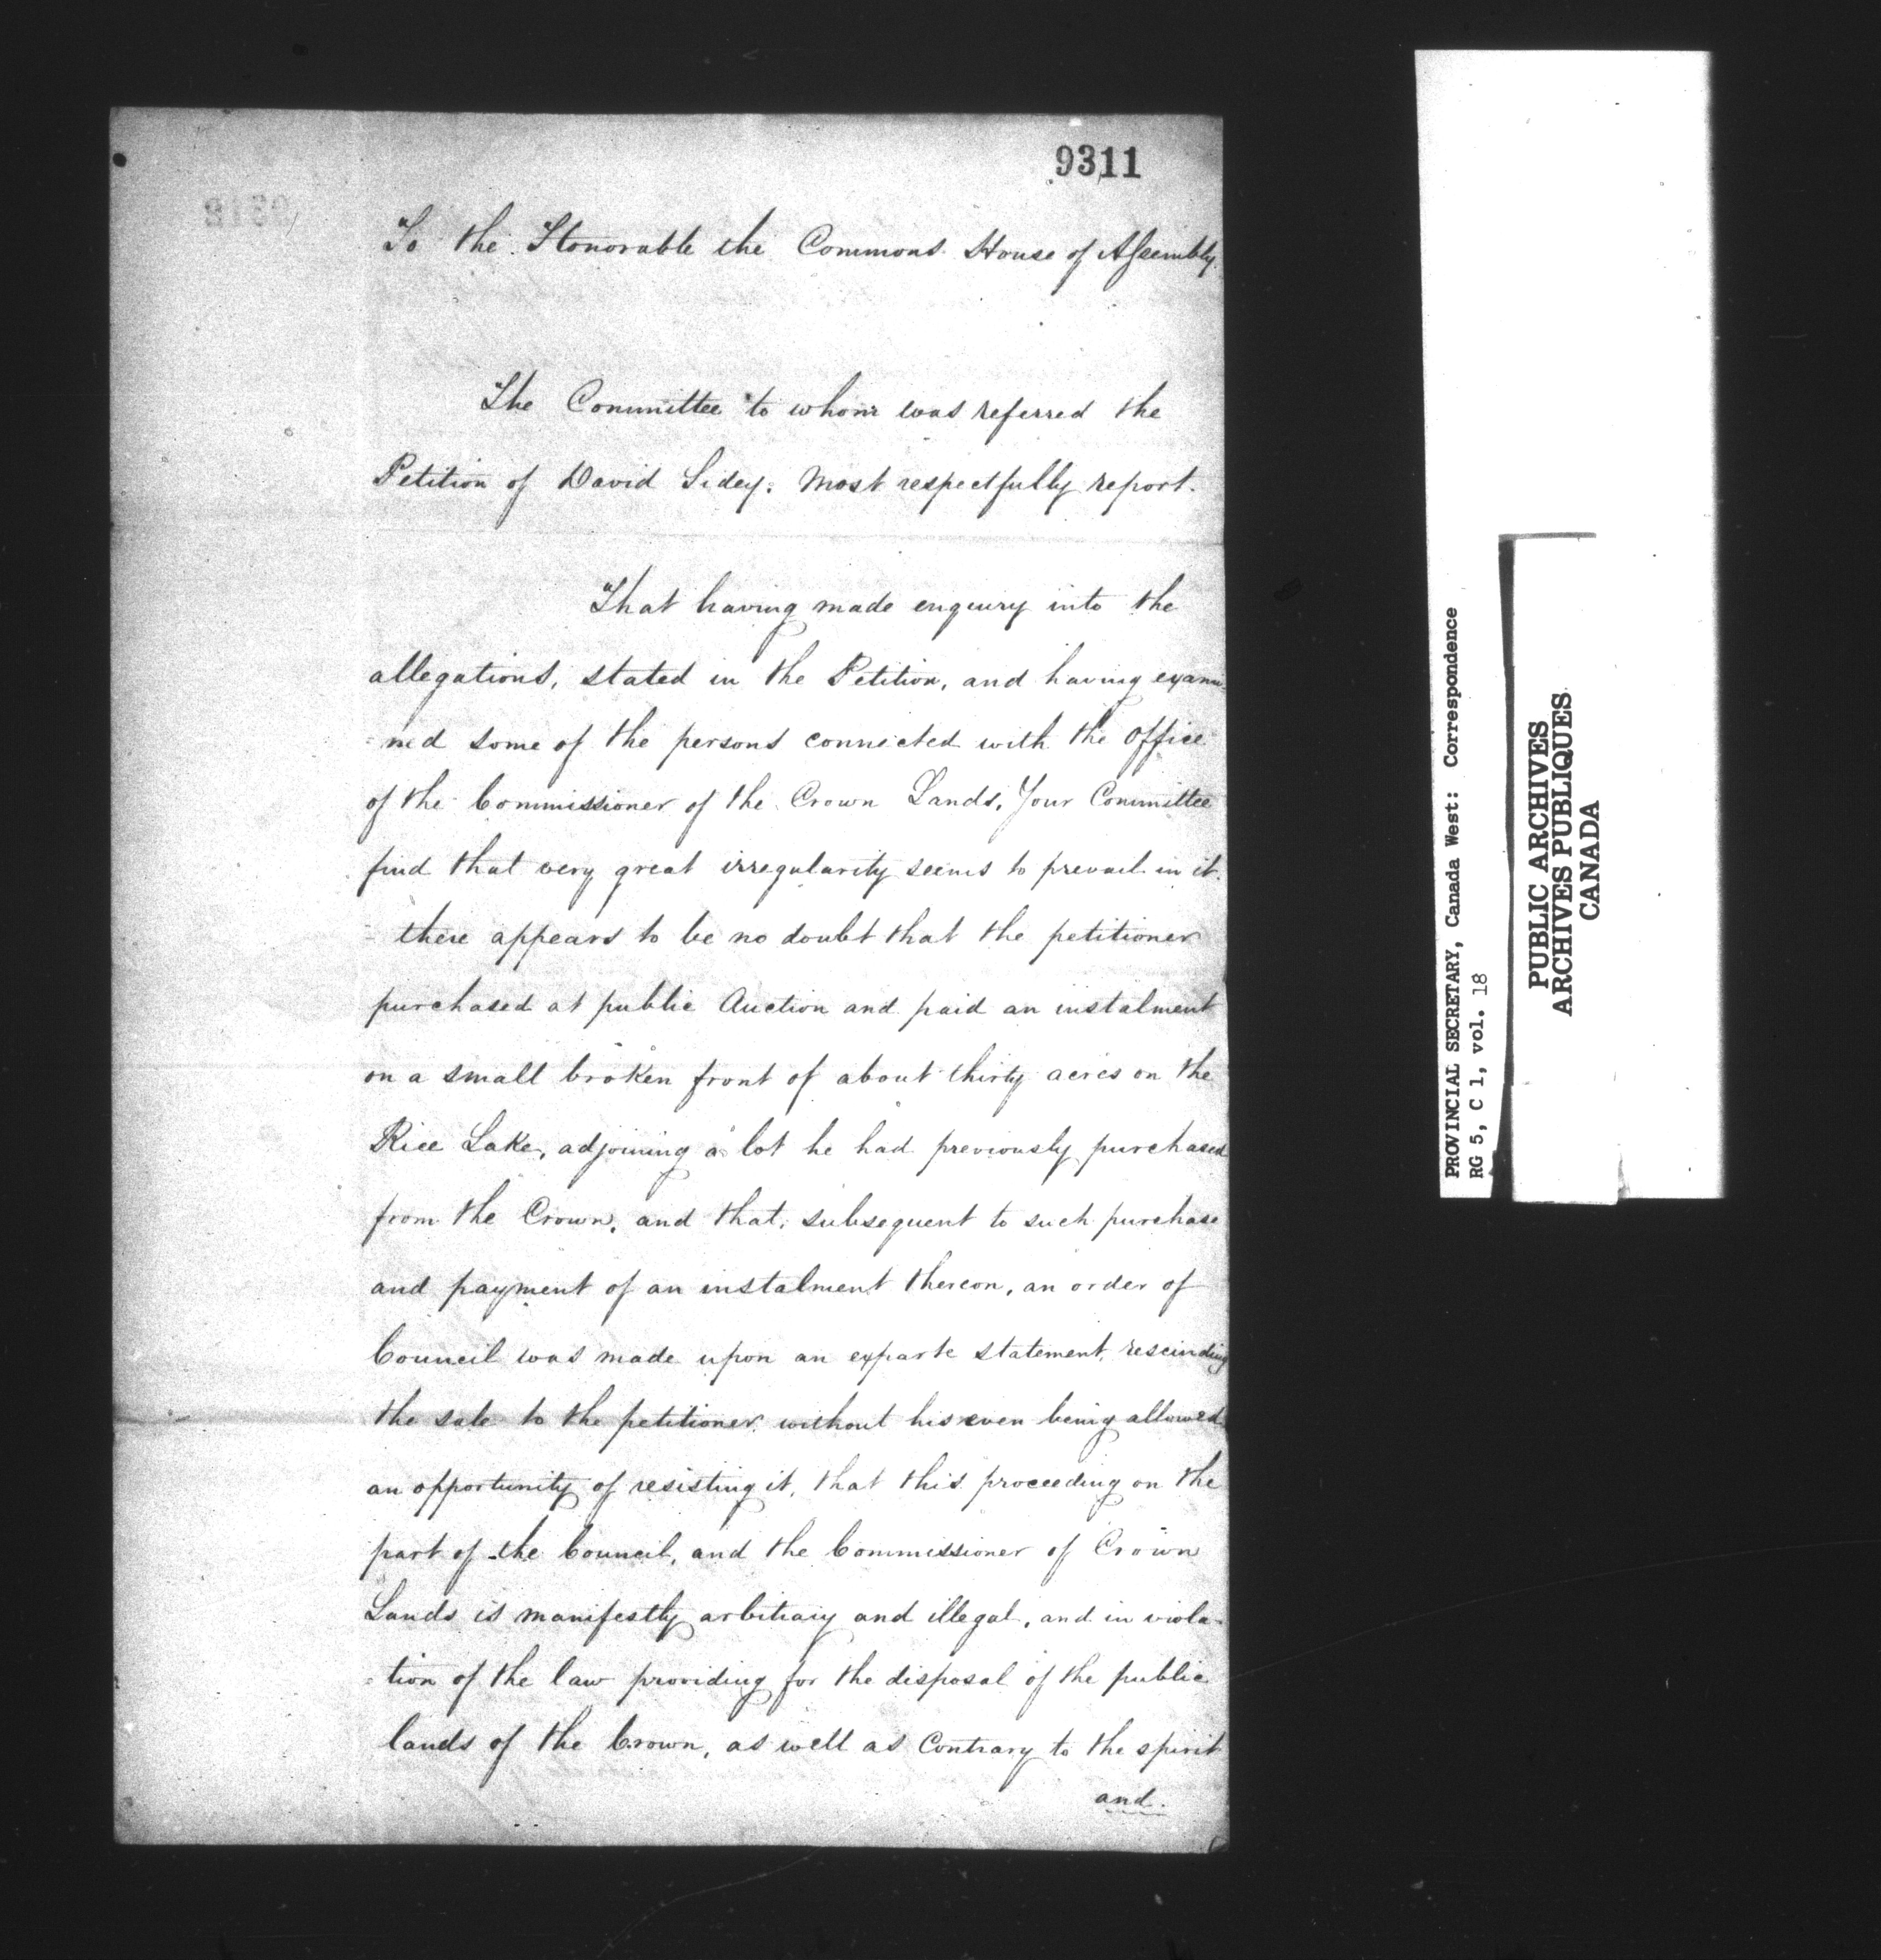 9311
To the Honorable the Commons House of Assembly.
The Committee to whom was referred the
Petition of David Sidey. Most respectfully report.
That having made enquiry into the
allegations, stated in the Petition, and having exami-
-ned some of the persons connected with the Office
of the Commissioner of the Crown Lands, Your Committee
find that very great irregularity seems to prevail in it.
- there appears to be no doubt that the petitioner
purchased at public Auction and paid an instalment
on a small broken front of about thirty acres on the
Rice Lake, adjoining a lot he had previously purchased
from the Crown, and that, subsequent to such purchase
and payment of an instalment thereon, an order of
Council was made upon an exparte statement, rescinding
the sale to the petitioner, without his even being allowed
an opportunity of resisting it, that this proceeding on the
part of the Council, and the Commissioner of Crown
Lands is manifestly arbitrary and illegal, and in viola-
-tion of the law providing for the disposal of the public
lands of the Crown, as well as Contrary to the spirit
and.
PROVINCIAL SECRETARY, Canada West: Correspondence
RG 5, C 1, vol. 18
PUBLIC ARCHIVES
ARCHIVES PUBLIQUES
CANADA